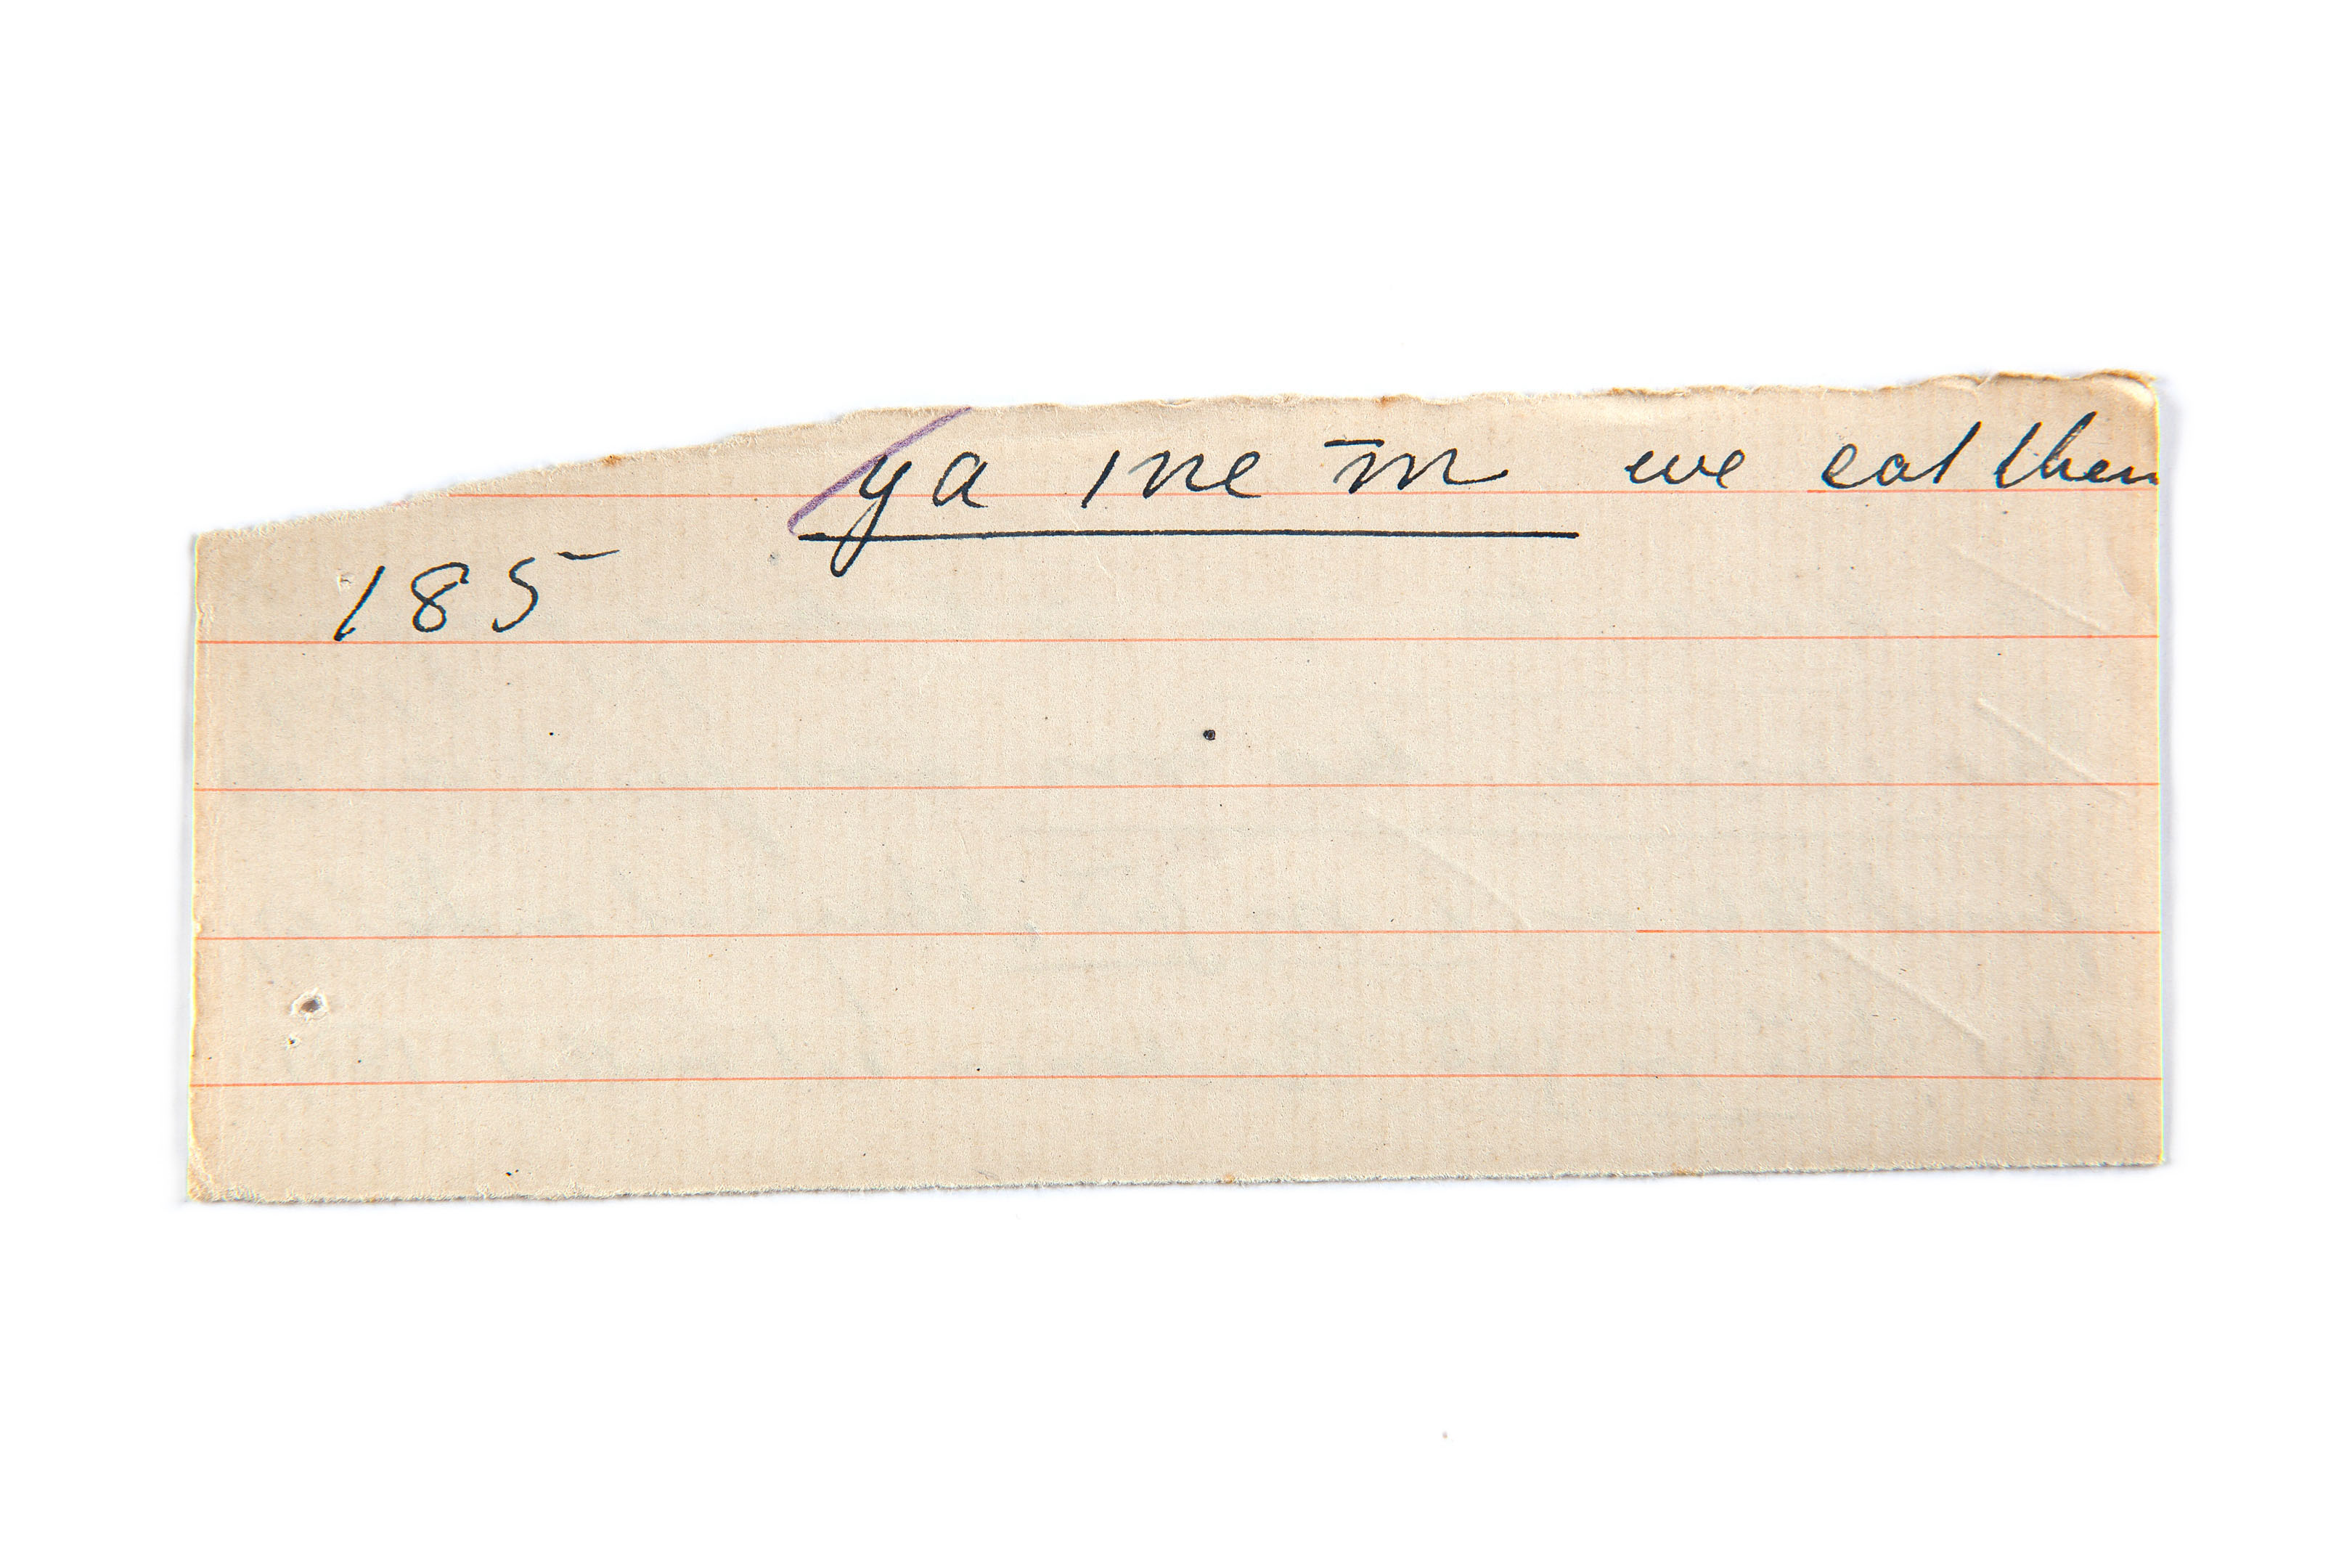 ya ine īn we eat them
185